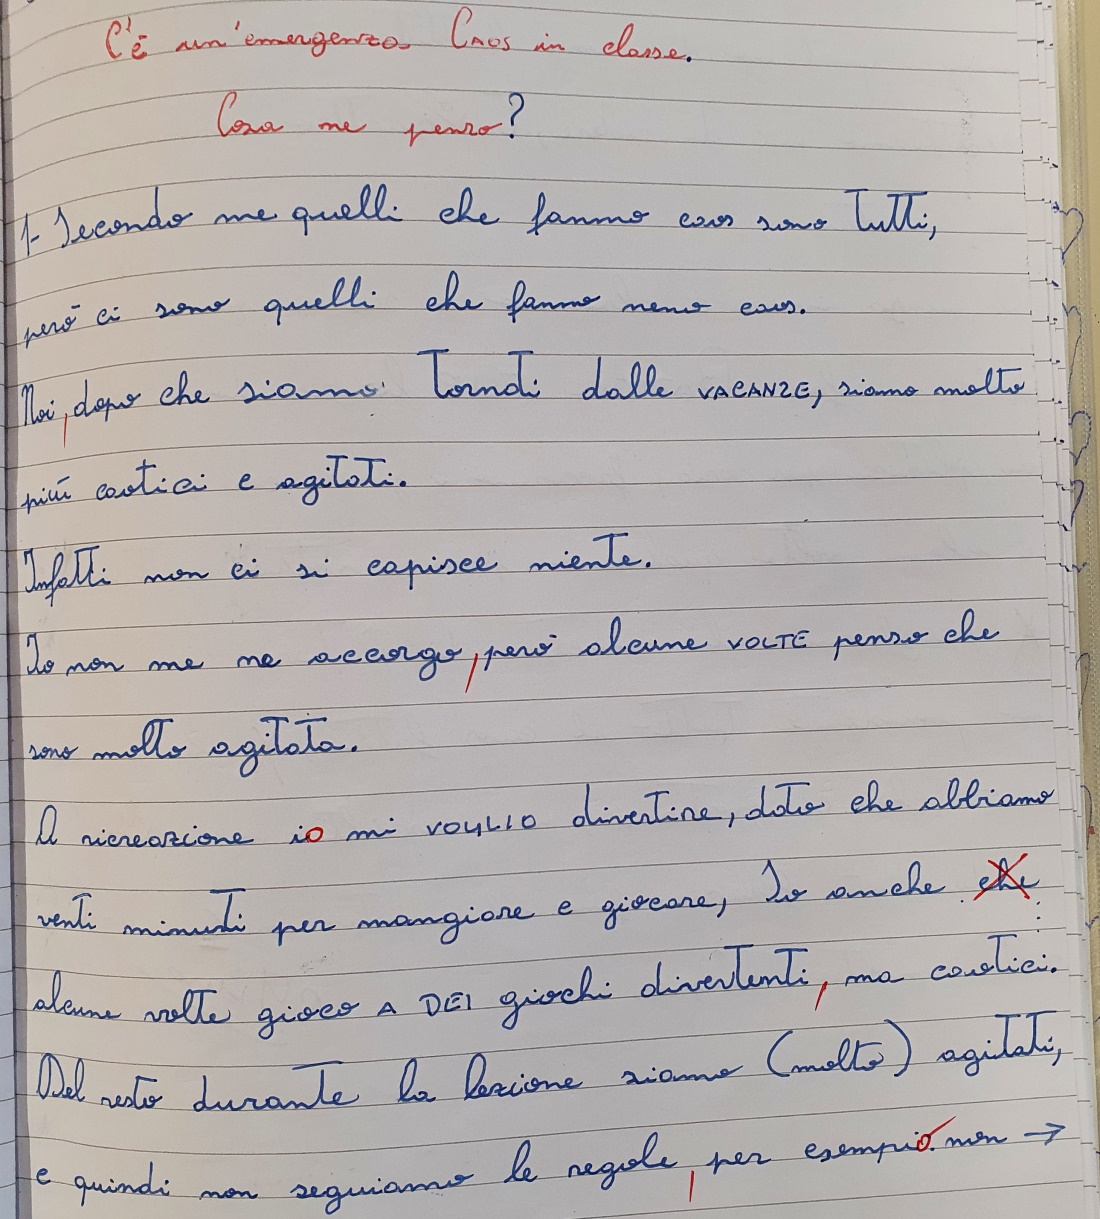 C'è un'emergenza. Caos in classe.
Cosa ne penso?
1- Secondo me quelli che fanno caos sono Tutti,
però ci sono quelli che fanno meno caos.
Noi, dopo che siamo Tornati dalle VACANZE, siamo molto
più caotici e agitati.
Infatti non ci si capisce niente.
Io non me ne accorgo, però alcune VOLTE penso che
sono molto agitata.
A ricreazione io mi VOGLIO divertire, dato che abbiamo
venti minuti per mangiare e giocare, Io anche che
alcune volte gioco A DEI giochi divertenti, ma caotici.
Del resto durante la lezione siamo (molto) agitati,
e quindi non seguiamo le regole, per esempio non →